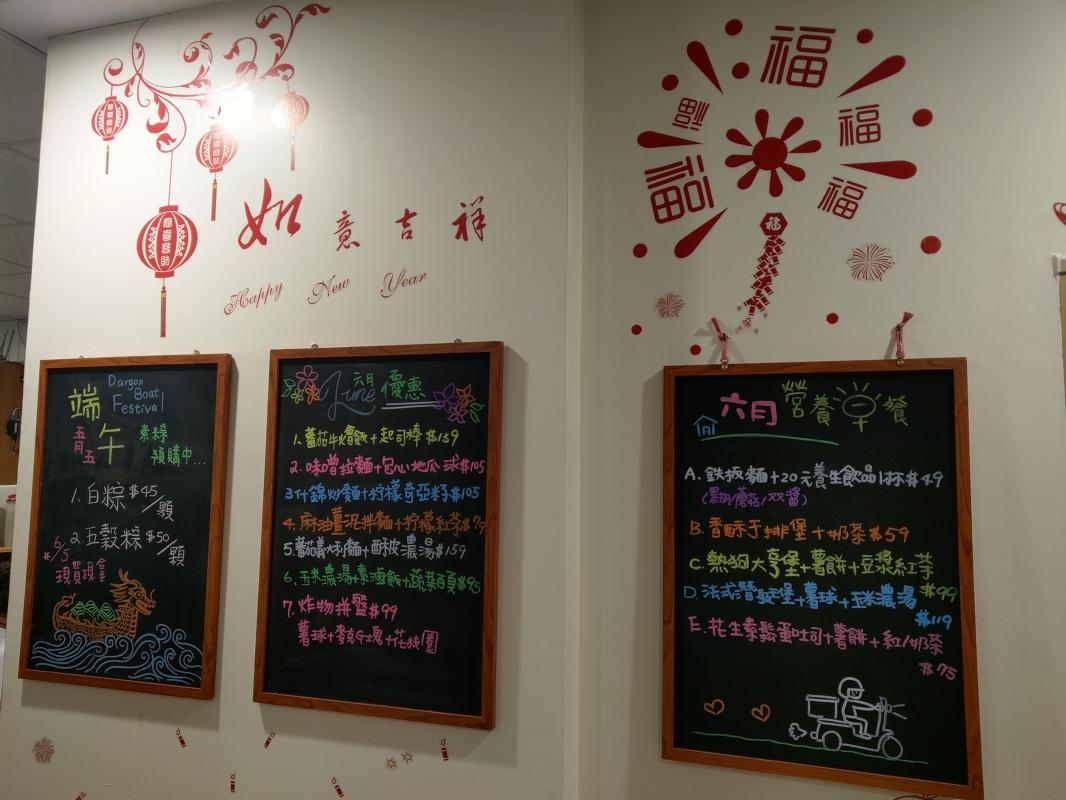 如意吉祥
Happy New Year
福
福
福
福
福
福
端午
Dargon
Boat
Festival
素粽
預購中...
1. 白粽 $45/顆
2. 五穀粽 $50/顆
*6/5
現買現拿
June 六月 優惠
1. 蕃茄燴飯+起司棒 $139
2. 味噌拉麵+包心地瓜球 $105
3 什錦炒麵+柠檬奇亞籽 $105
4. 麻油薑泥拌麵+柠檬紅茶 $79
5. 蕃茄義大利麵+酥皮濃湯 $159
6. 玉米濃湯+素滷飯+蔬菜 $95
7. 炸物拼盤 $99
薯球+麥克G塊+花枝圈
六月 營養早餐
A. 鉄板麵+20元養生飲品1杯 $49
(黑胡/蘑菇/双醬)
B. 香酥于排堡+奶茶 $59
C. 熱狗大亨堡+薯餅+豆漿紅茶
$99
D. 法式潛艇堡+薯球+玉米濃湯
$119
E. 花生素鬆蛋吐司+薯餅+紅/奶茶
$75